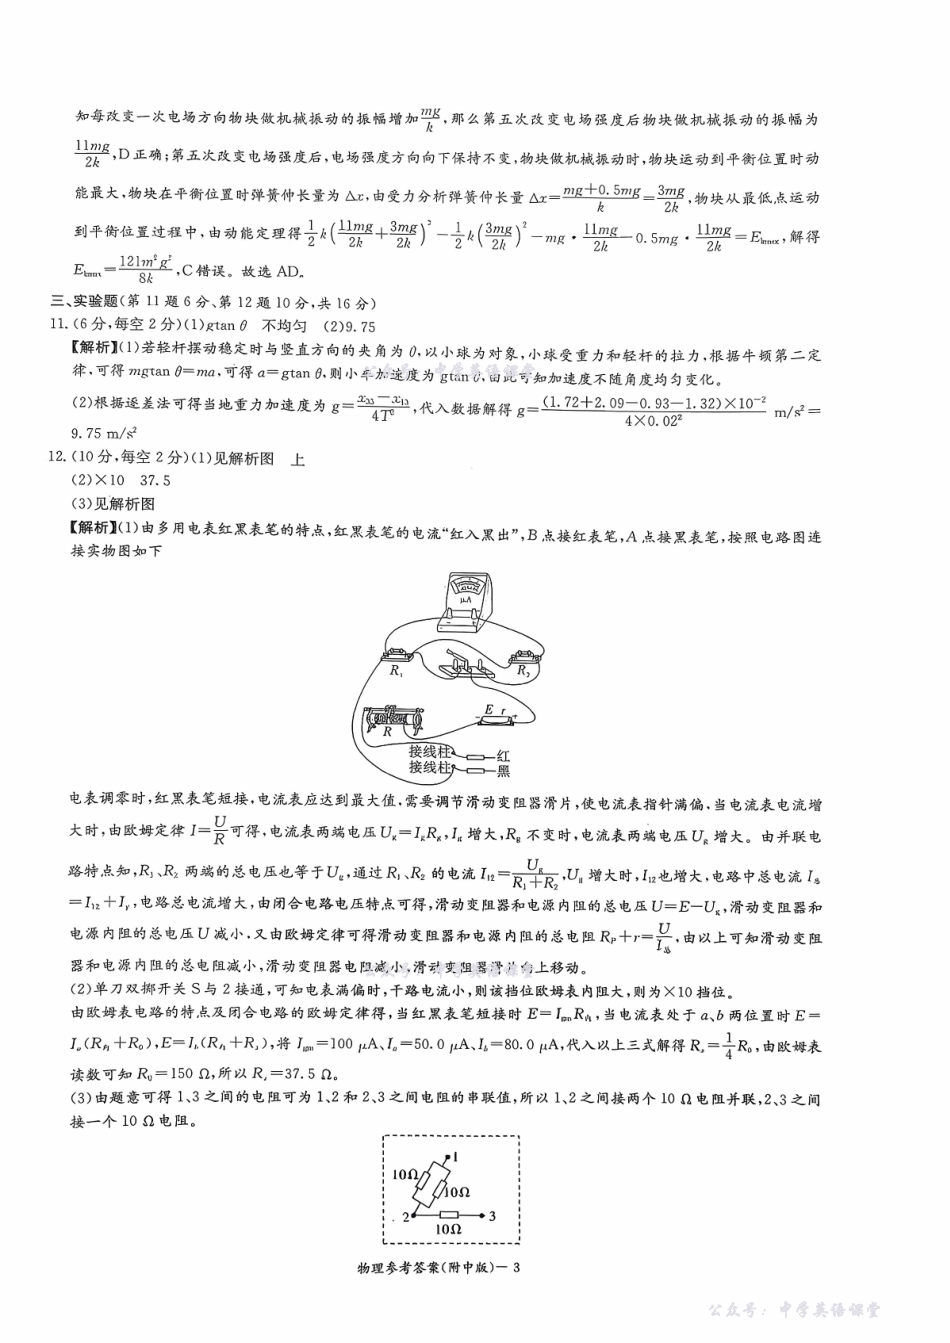 知每改变一次电场方向物块做机械振动的振幅增加mg/k,那么第五次改变电场强度后物块做机械振动的振幅为
11mg/2k,D正确;第五次改变电场强度后,电场强度方向向下保持不变,物块做机械振动时,物块运动到平衡位置时动
能最大,物块在平衡位置时弹簧伸长量为△x,由受力分析弹簧伸长量△x=(mg+0.5mg)/k=3mg/2k,物块从最低点运动
到平衡位置过程中,由动能定理得1/2k(11mg/2k+3mg/2k)²-1/2k(3mg/2k)²-mg·11mg/2k-0.5mg·11mg/2k=Ekmax,解得
Ekmax=121m²g²/8k,C错误。故选AD。
三、实验题(第11题6分、第12题10分,共16分)
11.(6分,每空2分)(1)gtan θ 不均匀 (2)9.75
【解析】(1)若轻杆摆动稳定时与竖直方向的夹角为θ,以小球为对象,小球受重力和轻杆的拉力,根据牛顿第二定
律,可得mgtan θ=ma,可得a=gtan θ,则小车加速度为gtan θ,由此可知加速度不随角度均匀变化。
(2)根据逐差法可得当地重力加速度为g=(x₃₅-x₁₃)/4T²,代入数据解得g=(1.72+2.09-0.93-1.32)×10⁻²/4×0.02² m/s²=
9.75 m/s²
12.(10分,每空2分)(1)见解析图 上
(2)×10 37.5
(3)见解析图
【解析】(1)由多用电表红黑表笔的特点,红黑表笔的电流“红入黑出”,B点接红表笔,A点接黑表笔,按照电路图连
接实物图如下
μA
R₁
R₂
E r
- +
R
接线柱 红
接线柱 黑
电表调零时,红黑表笔短接,电流表应达到最大值,需要调节滑动变阻器滑片,使电流表指针满偏,当电流表电流增
大时,由欧姆定律I=U/R可得,电流表两端电压Ug=IgRg,Ig增大,Rg不变时,电流表两端电压Ug增大。由并联电
路特点知,R₁、R₂两端的总电压也等于Ug,通过R₁、R₂的电流I₁₂=Ug/(R₁+R₂),Ug增大时,I₁₂也增大,电路中总电流I总
=I₁₂+Ig,电路总电流增大,由闭合电路电压特点可得,滑动变阻器和电源内阻的总电压U=E-Ug,滑动变阻器和
电源内阻的总电压U减小,又由欧姆定律可得滑动变阻器和电源内阻的总电阻RP+r=U/I总,由以上可知滑动变阻
器和电源内阻的总电阻减小,滑动变阻器电阻减小,滑动变阻器滑片向上移动。
(2)单刀双掷开关S与2接通,可知电表满偏时,干路电流小,则该挡位欧姆表内阻大,则为×10挡位。
由欧姆表电路的特点及闭合电路的欧姆定律得,当红黑表笔短接时E=IgmR内,当电流表处于a、b两位置时E=
Ia(R内+R₀),E=Ib(R内+Rx),将Igm=100 μA、Ia=50.0 μA、Ib=80.0 μA,代入以上三式解得Rx=1/4R₀,由欧姆表
读数可知R₀=150 Ω,所以Rx=37.5 Ω。
(3)由题意可得1、3之间的电阻可为1、2和2、3之间电阻的串联值,所以1、2之间接两个10 Ω电阻并联,2、3之间
接一个10 Ω电阻。
1
10Ω
10Ω
2 3
10Ω
物理参考答案(附中版)-3
公众号:中学英语课堂